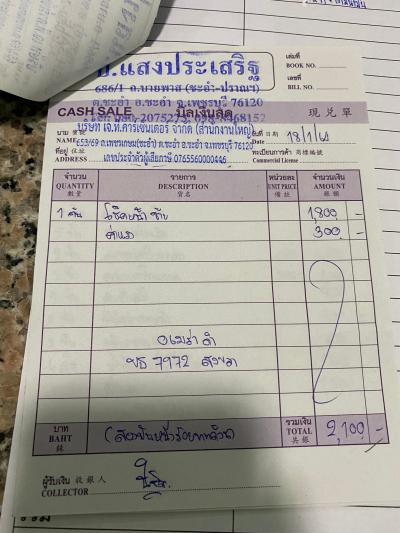 บ.แสงประเสริฐ
686/1 ถ.บายพาส (ชะอำ-ปราณฯ)
ต.ชะอำ อ.ชะอำ จ.เพชรบุรี 76120
เล่มที่
BOOK NO.
เลขที่
BILL NO.
CASH SALE บิลเงินสด 現兑單
นาม 寶號
NAME
บริษัท เจ.ที.คาร์เซนเตอร์ จำกัด (สำนักงานใหญ่)
653/69 ถ.เพชรเกษม(ชะอำ) ต.ชะอำ อ.ชะอำ จ.เพชรบุรี 76120
ที่อยู่ 住址
ADDRESS
เลขประจำตัวผู้เสียภาษี 0765560000446
วันที่ 日期
Date
ทะเบียนการค้า 商標編號
Commercial License
จำนวน รายการ หน่วยละ จำนวนเงิน
QUANTITY DESCRIPTION UNIT PRICE AMOUNT
數量 貨名 備註 銀額
1 คัน โช๊คหน้า ซ้าย 1,800 -
ค่าแรง 300 -
7972 สงขลา
บาท
BAHT
銖
(สองพันหนึ่งร้อยบาทถ้วน)
รวมเงิน
TOTAL
共銀
2,100 -
ผู้รับเงิน 收銀人
COLLECTOR